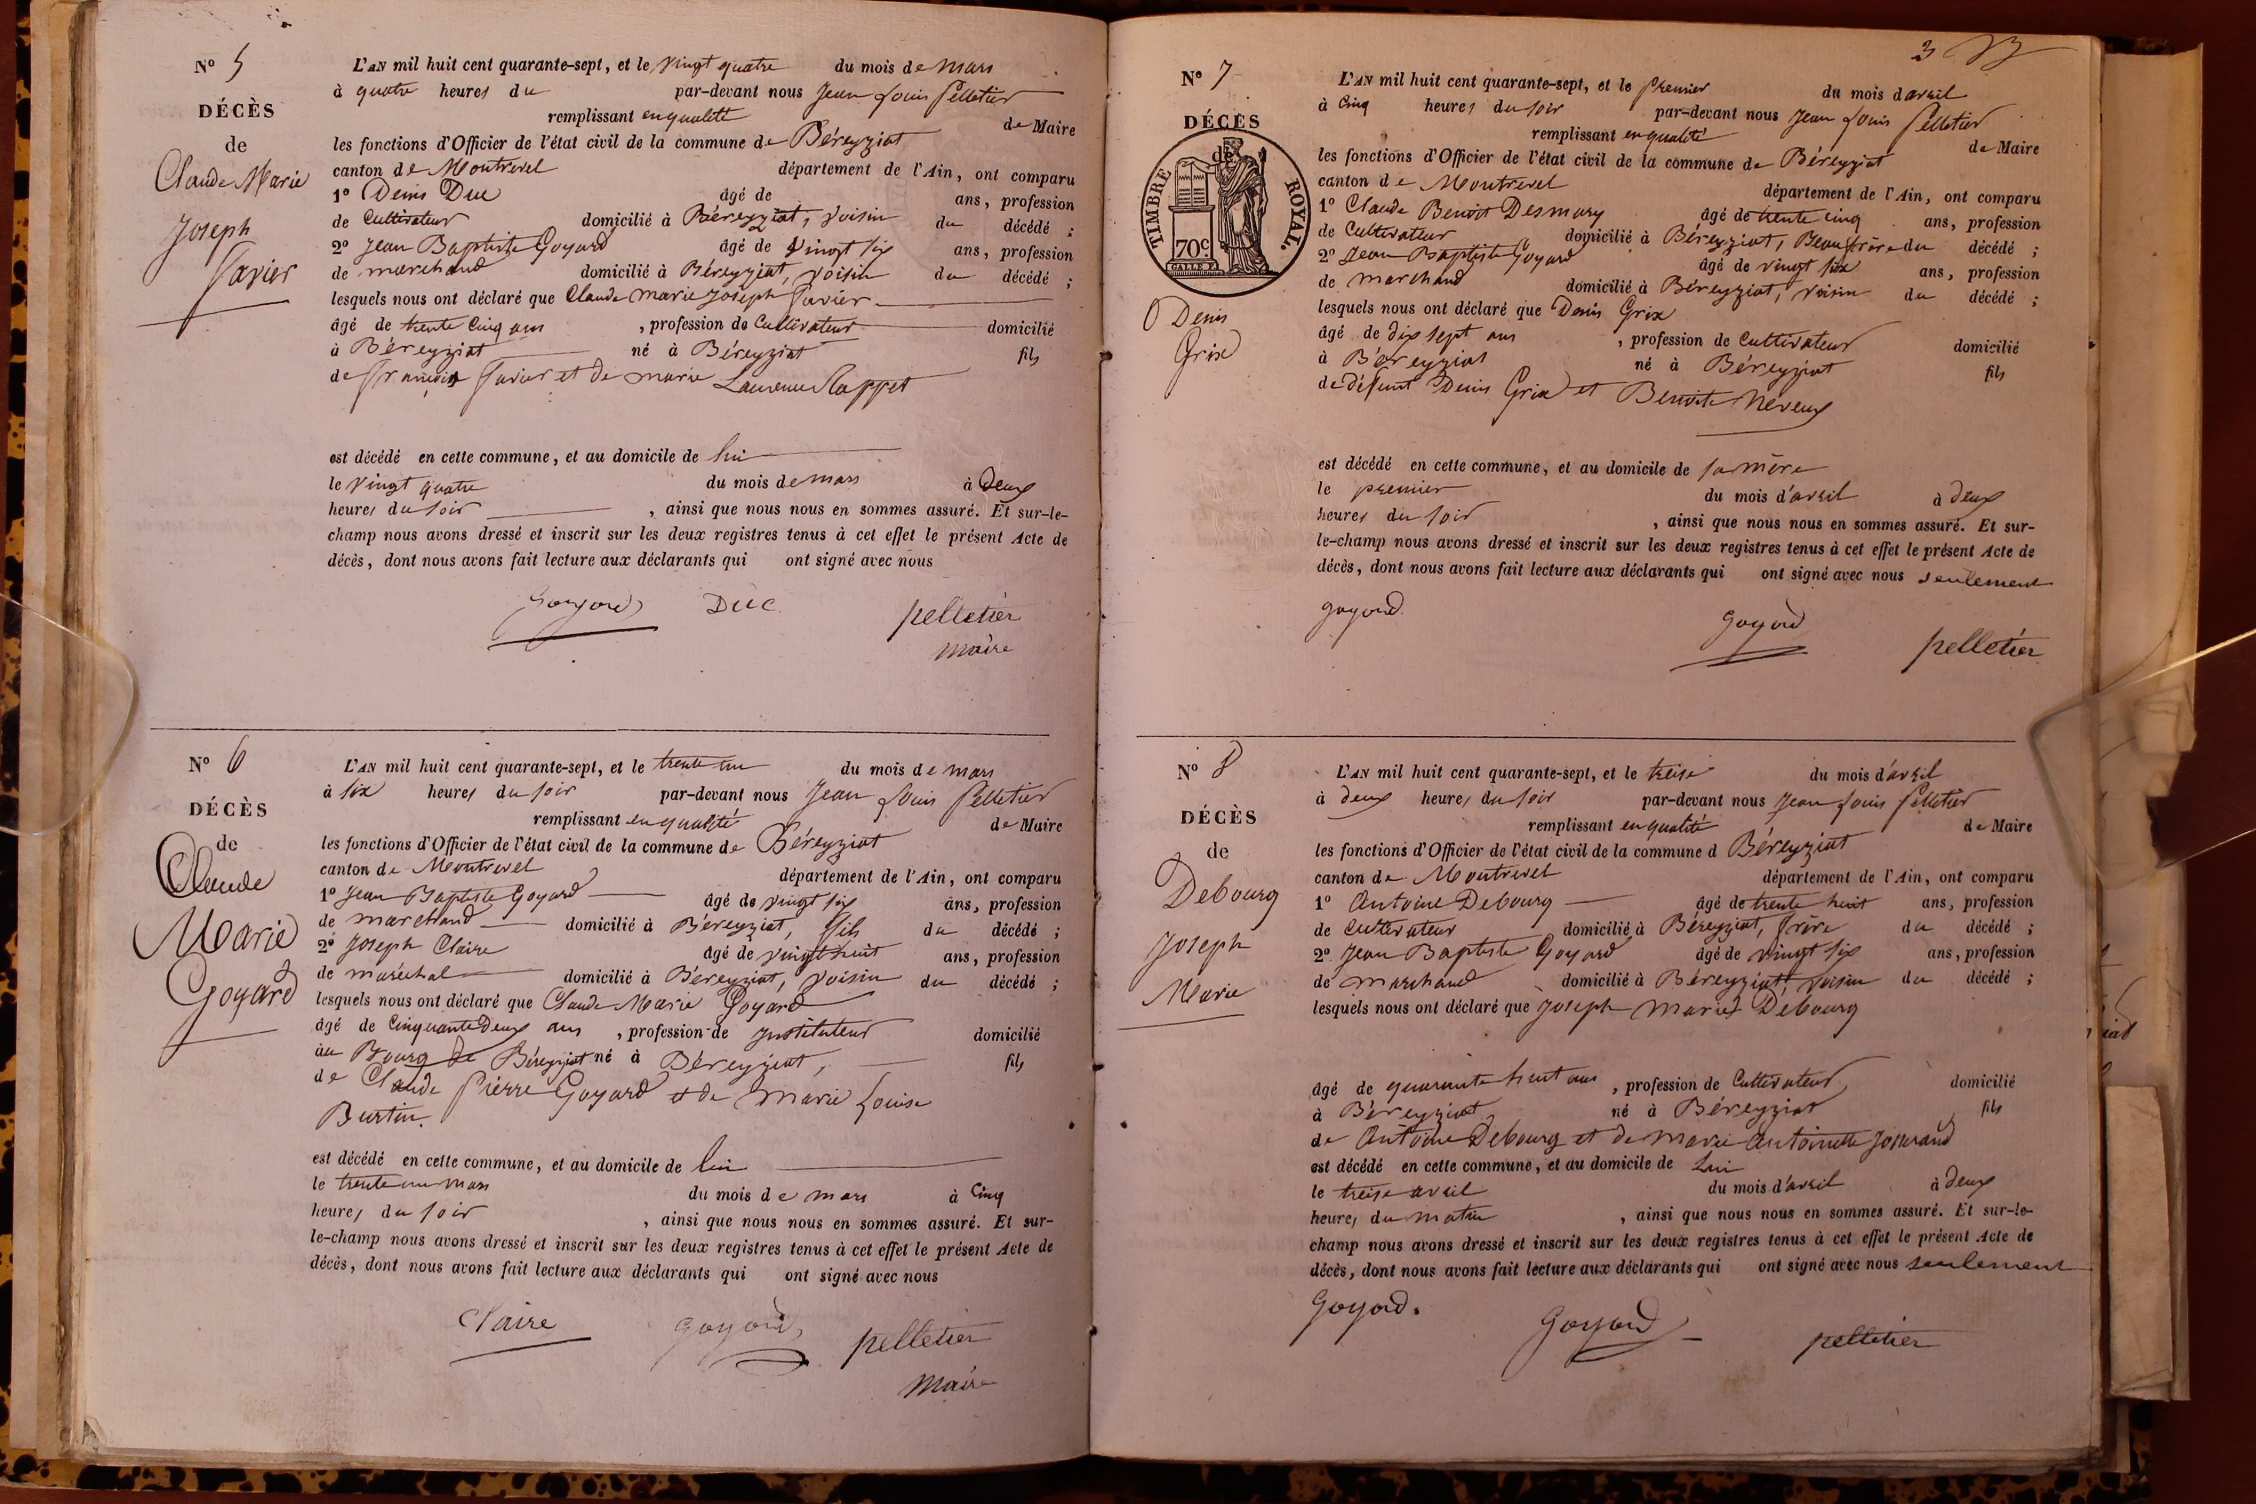 Nº 5
DÉCÈS
de
Claude Marie
Joseph
Favier
L'AN mil huit cent quarante-sept, et le vingt quatre du mois de mars
à quatre heures du par-devant nous Jean Louis Pelletier
remplissant en qualité de Maire
les fonctions d'Officier de l'état civil de la commune de Béreyziat
canton de Montrevel département de l'Ain, ont comparu
1º Denis Duc âgé de ans, profession
de Cultivateur domicilié à Béreyziat, voisin du décédé ;
2º Jean Baptiste Goyard âgé de vingt six ans, profession
de marchand domicilié à Béreyziat, voisin du décédé ;
lesquels nous ont déclaré que Claude marie Joseph Favier
âgé de trente Cinq ans , profession de Cultivateur domicilié
à Béreyziat né à Béreyziat fils
de Favier et de marie Laurence
est décédé en cette commune, et au domicile de lui
le vingt quatre du mois de mars à Deux
heures du soir , ainsi que nous nous en sommes assuré. Et sur-le-
champ nous avons dressé et inscrit sur les deux registres tenus à cet effet le présent Acte de
décès, dont nous avons fait lecture aux déclarants qui ont signé avec nous
Goyard DUC pelletier
maire
Nº 6
DÉCÈS
de
Claude
Marie
Goyard
L'AN mil huit cent quarante-sept, et le trente un du mois de mars
à six heures du soir par-devant nous Jean Louis Pelletier
remplissant en qualité de Maire
les fonctions d'Officier de l'état civil de la commune de Béreyziat
canton de Montrevel département de l'Ain, ont comparu
1º Jean Baptiste Goyard âgé de vingt six ans, profession
de marchand domicilié à Béreyziat, fils du décédé ;
2º Joseph Claire âgé de vingt huit ans, profession
de maréchal domicilié à Béreyziat, voisin du décédé ;
lesquels nous ont déclaré que Claude Marie Goyard
âgé de Cinquante Deux ans , profession de Instituteur domicilié
au Bourg de Béreyziat né à Béreyziat, fils
de Claude Pierre Goyard et de Marie Louise
Burtin.
est décédé en cette commune, et au domicile de lui
le trente un mars du mois de mars à Cinq
heures du soir , ainsi que nous nous en sommes assuré. Et sur-
le-champ nous avons dressé et inscrit sur les deux registres tenus à cet effet le présent Acte de
décès, dont nous avons fait lecture aux déclarants qui ont signé avec nous
Claire Goyard pelletier
Maire
3
Nº 7
DÉCÈS
de
TIMBRE ROYAL.
70c.
Denis
Grix
L'AN mil huit cent quarante-sept, et le Premier du mois d'avril
à Cinq heures du soir par-devant nous Jean Louis Pelletier
remplissant en qualité de Maire
les fonctions d'Officier de l'état civil de la commune de Béreyziat
canton de Montrevel département de l'Ain, ont comparu
1º Claude Benoit Desmary âgé de trente cinq ans, profession
de Cultivateur domicilié à Béreyziat, Beau frère du décédé ;
2º Jean Baptiste Goyard âgé de vingt six ans, profession
de marchand domicilié à Béreyziat, voisin du décédé ;
lesquels nous ont déclaré que Denis Grix
âgé de dix sept ans , profession de Cultivateur domicilié
à Béreyziat né à Béreyziat fils
de défunt Denis Grix et Benoite Neveux
est décédé en cette commune, et au domicile de sa mère
le premier du mois d'avril à deux
heures du soir , ainsi que nous nous en sommes assuré. Et sur-
le-champ nous avons dressé et inscrit sur les deux registres tenus à cet effet le présent Acte de
décès, dont nous avons fait lecture aux déclarants qui ont signé avec nous seulement
goyard. Goyard pelletier
Nº 8
DÉCÈS
de
Debourg
Joseph
Marie
L'AN mil huit cent quarante-sept, et le treise du mois d'avril
à deux heures du soir par-devant nous Jean Louis Pelletier
remplissant en qualité de Maire
les fonctions d'Officier de l'état civil de la commune d Béreyziat
canton de Montrevel département de l'Ain, ont comparu
1º Antoine Debourg âgé de trente huit ans, profession
de Cultivateur domicilié à Béreyziat, frère du décédé ;
2º Jean Baptiste Goyard âgé de vingt six ans, profession
de marchand domicilié à Béreyziat, voisin du décédé ;
lesquels nous ont déclaré que Joseph marie Debourg
âgé de quarante huit ans , profession de Cultivateur domicilié
à Béreyziat né à Béreyziat fils
de Antoine Debourg et de marie Antoinette Josserand
est décédé en cette commune, et au domicile de Lui
le treise avril du mois d'avril à deux
heures du matin , ainsi que nous nous en sommes assuré. Et sur-le-
champ nous avons dressé et inscrit sur les deux registres tenus à cet effet le présent Acte de
décès, dont nous avons fait lecture aux déclarants qui ont signé avec nous seulement
Goyard. Goyard pelletier